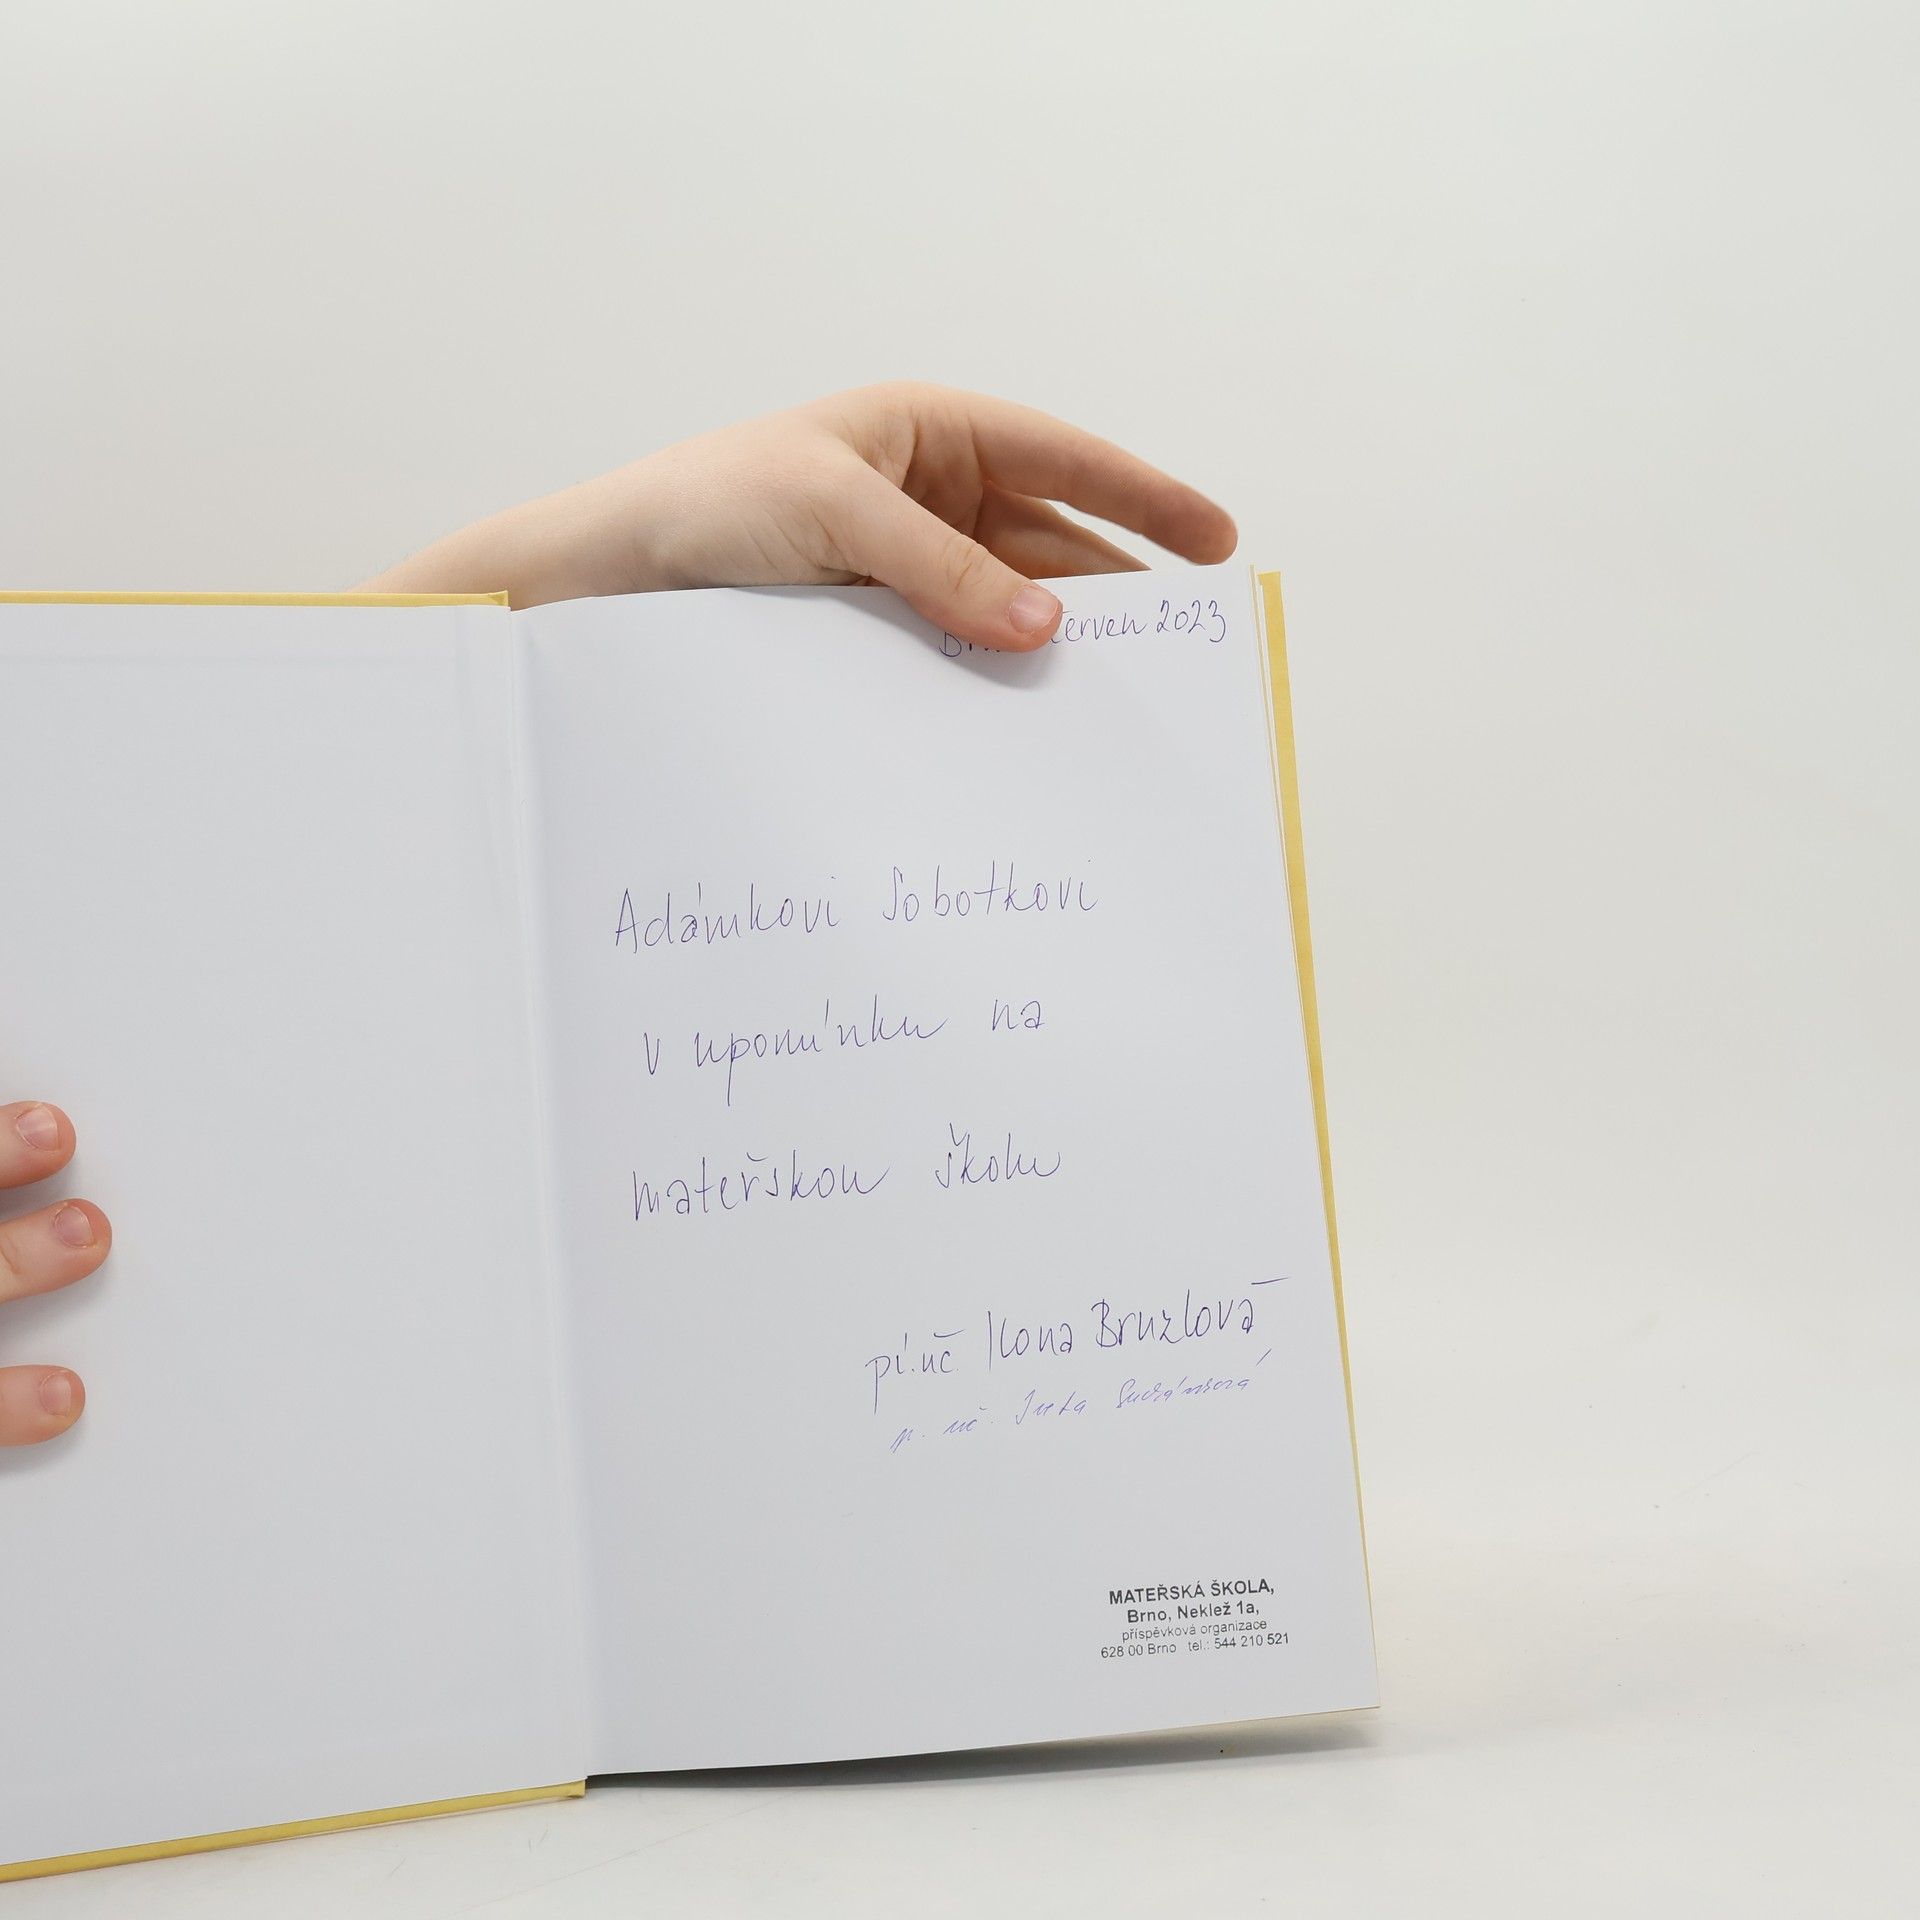 červen 2023
Adámkovi Sobotkovi
v upomínku na
mateřskou školu
pí. uč. Ilona Bruzlová
p. uč. Iveta
MATEŘSKÁ ŠKOLA,
Brno, Neklež 1a,
příspěvková organizace
628 00 Brno tel.: 544 210 521